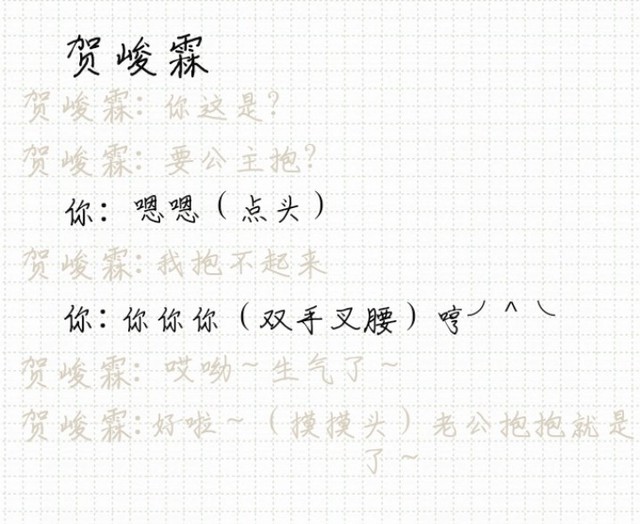 贺峻霖
贺峻霖：你这是？
贺峻霖：要公主抱？
你：嗯嗯（点头）
贺峻霖：我抱不起来
你：你你你（双手叉腰）哼╯^╰
贺峻霖：哎呦~生气了~
贺峻霖：好啦~（摸摸头）老公抱抱就是
了~